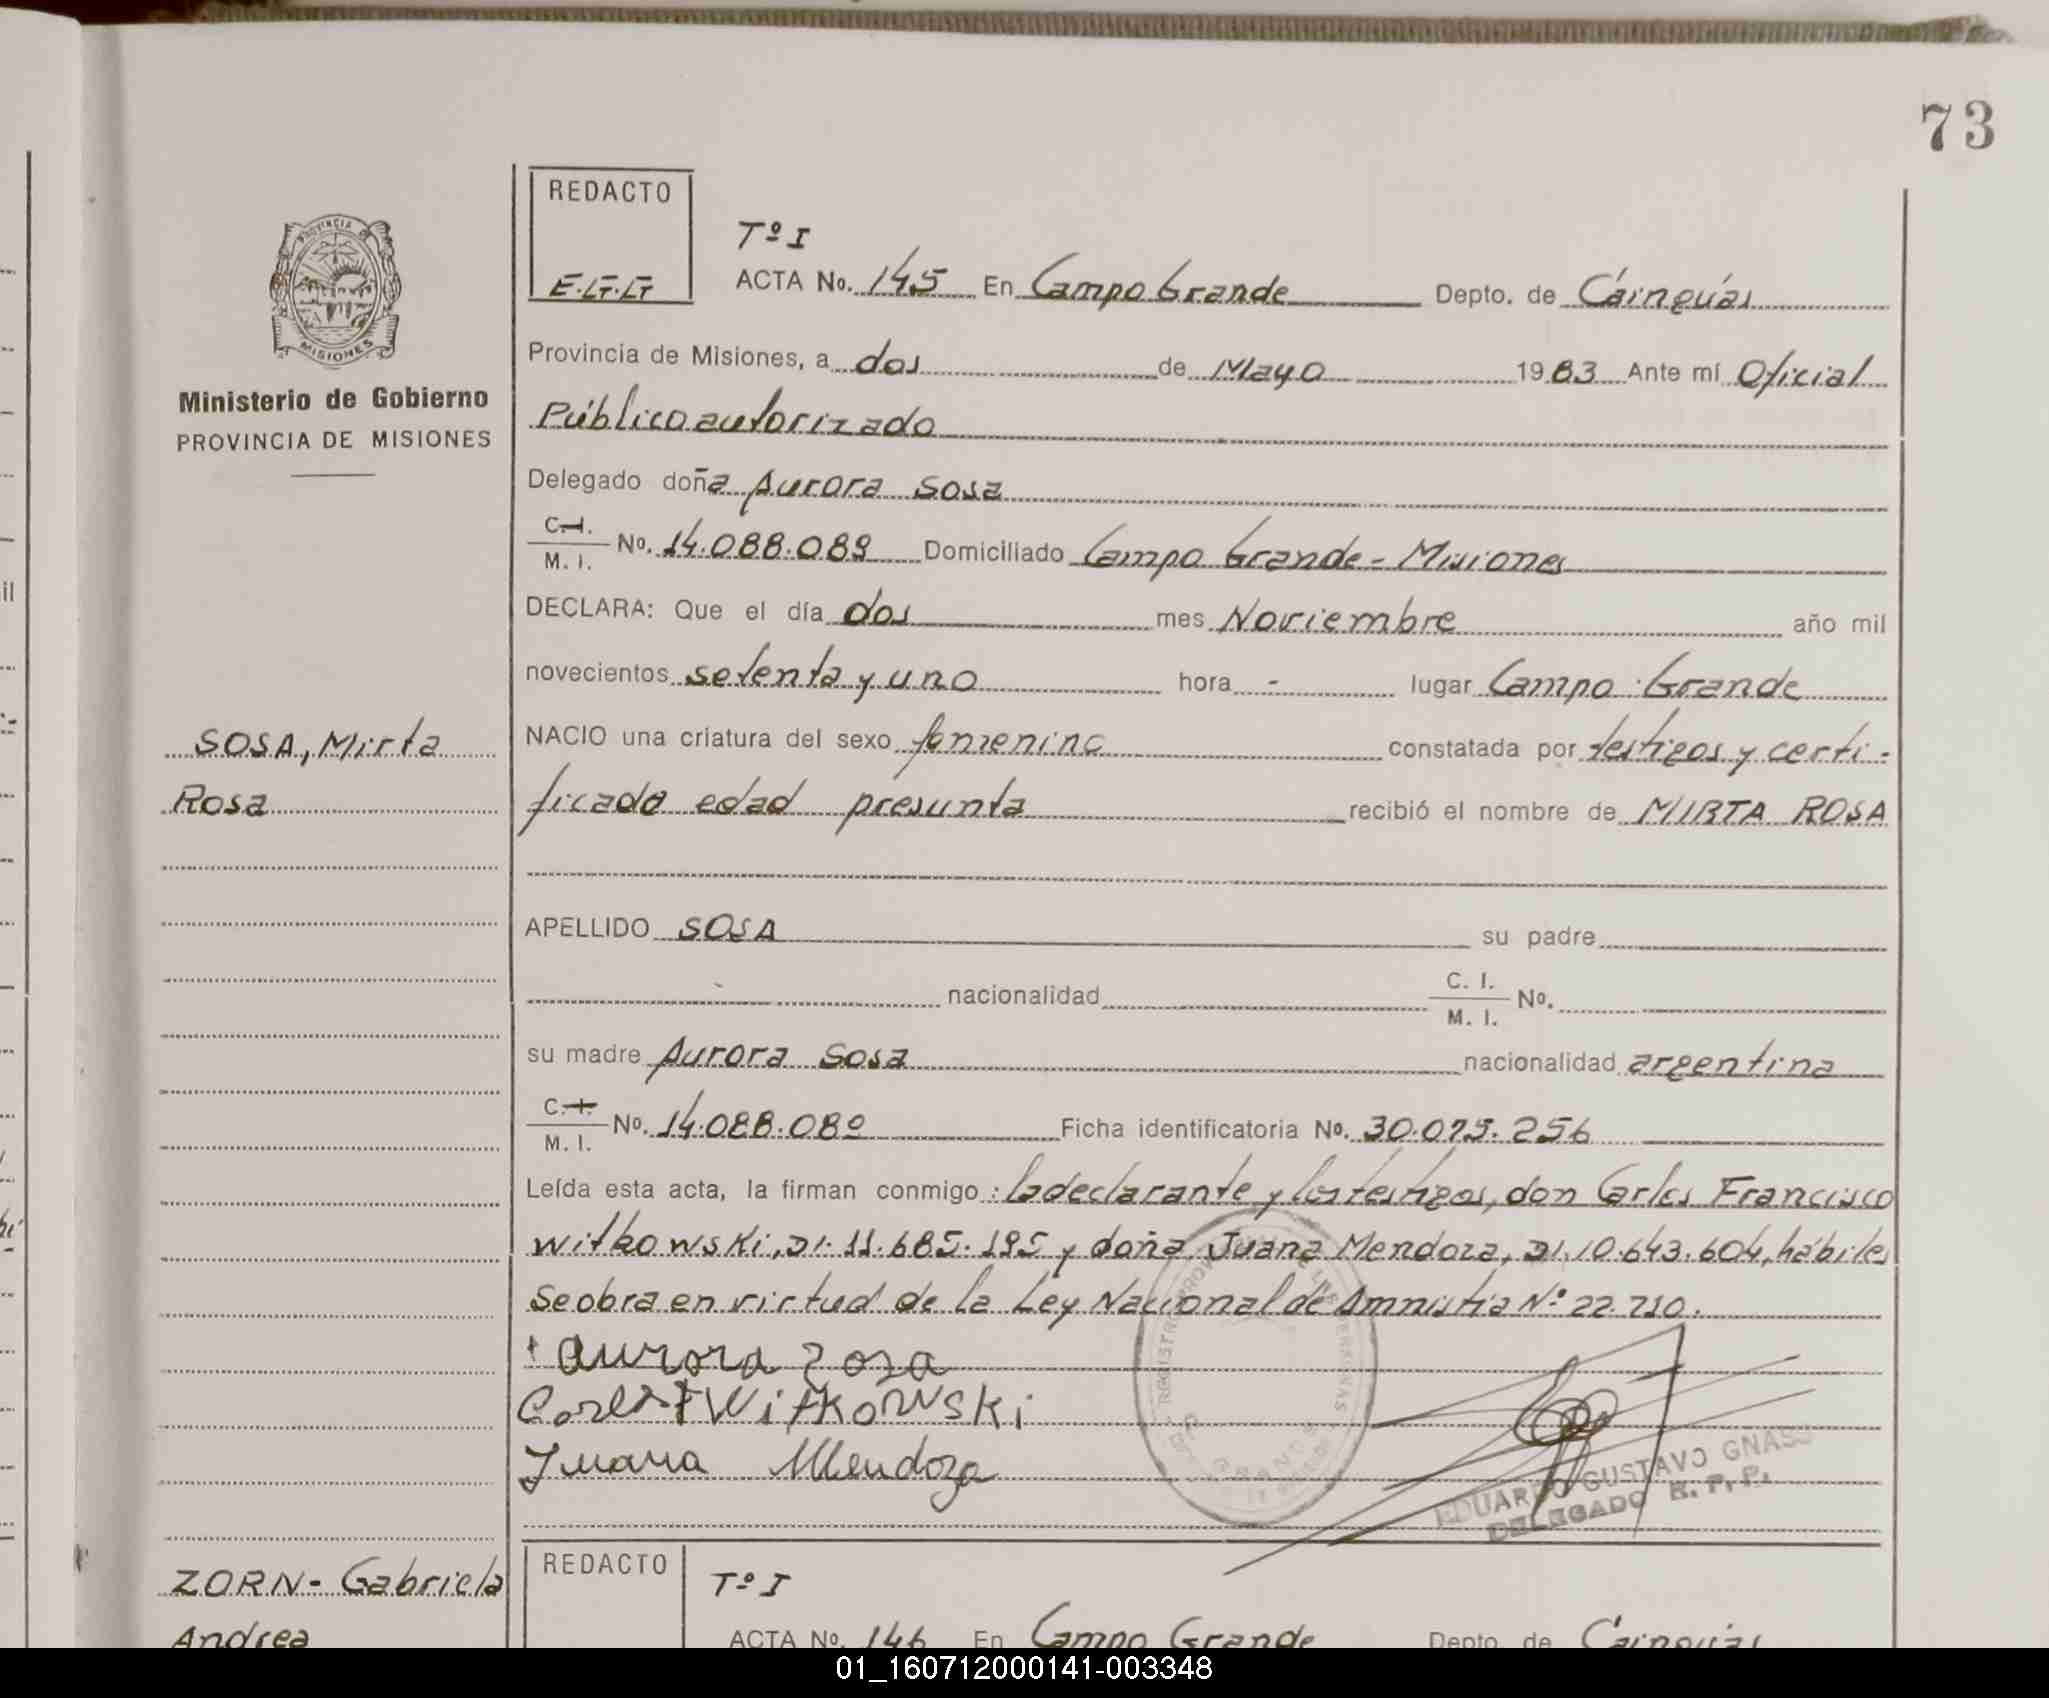 73
REDACTO
Tº I
E.LT.LT
ACTA No. 145 En Campo Grande Depto. de Cainguás
PROVINCIA DE
MISIONES
Ministerio de Gobierno
PROVINCIA DE MISIONES
Provincia de Misiones, a dos de Mayo 1983 Ante mí Oficial
Público autorizado
Delegado doña Aurora Sosa
C. I.
M. I. No. 14.088.089 Domiciliado Campo Grande - Misiones
DECLARA: Que el día dos mes Noviembre año mil
novecientos setenta y uno hora - lugar Campo Grande
SOSA, Mirta
Rosa
NACIO una criatura del sexo femenino constatada por testigos y certi-
ficado edad presunta recibió el nombre de MIRTA ROSA
APELLIDO SOSA su padre
nacionalidad C. I.
M. I. No.
su madre Aurora Sosa nacionalidad argentina
C. I.
M. I. No. 14.088.089 Ficha identificatoria No. 30.075.256
Leída esta acta, la firman conmigo: la declarante y los testigos, don Carlos Francisco
Witkowski, DI. 11.685.195 y doña Juana Mendoza, DI. 10.643.604, hábiles
Se obra en virtud de la Ley Nacional de Amnistía Nº 22.710.
Aurora Zosa
Carlos F Witkowski
Juana Mendoza
EDUARDO GUSTAVO GNASS
DELEGADO R. P. P.
ZORN - Gabriela
Andrea
REDACTO
Tº I
ACTA No. 146 En Campo Grande Depto. de Cainguás
01_160712000141-003348